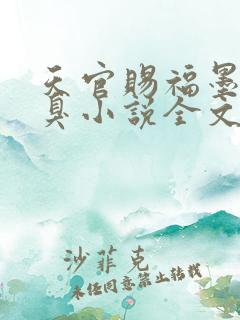 天官赐福墨
真小说全文
沙菲克
未经同意禁止转载